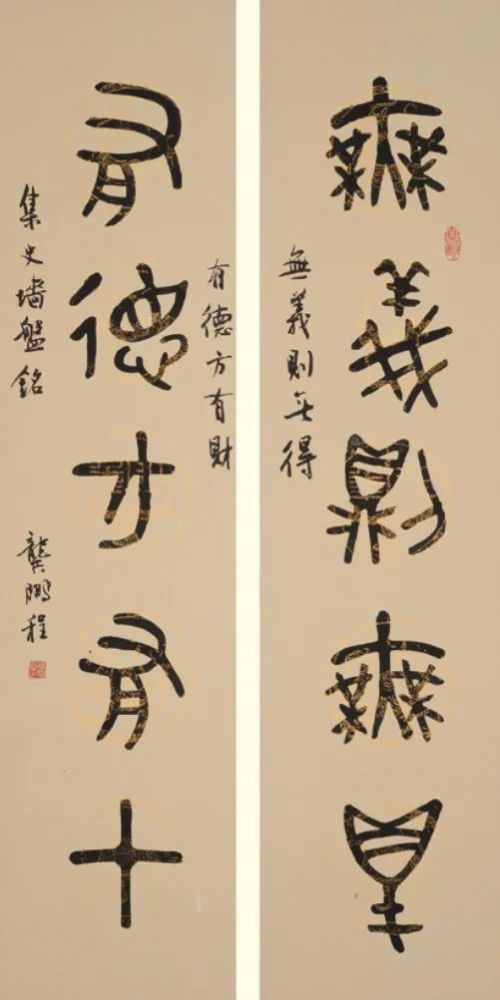 無義則無得
無義則无得
有德方有財
有德方有財
集史墻盤銘
龔鵬程